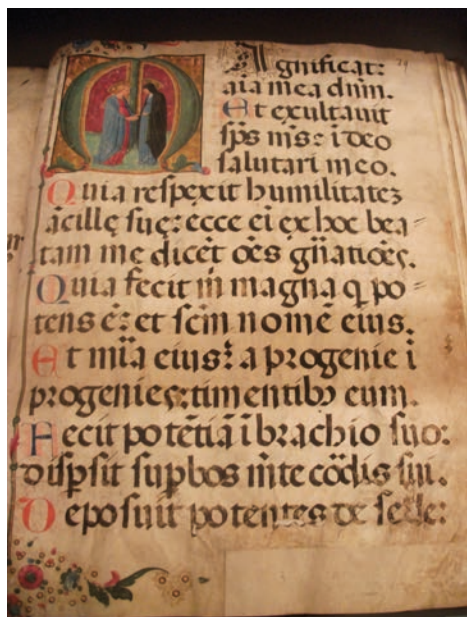 Magnificat: 29
aīa mea dn̄m.
Et exultauit
sp̄s m̄s: ī deo
salutari meo.
Quia respexit humilitatez
ācillę suę: ecce ei ex hoc bea=
tam me dicēt oēs gn̄atiōes.
Quia fecit m magna q po=
tens ē: et scm nomē eius.
Et mīa eius: a progenie ī
progenies: timentibꝰ eum.
Fecit potētiā ī brachio suo:
dispsit supbos m̄te cōdis sui.
Deposuit potentes de sede: